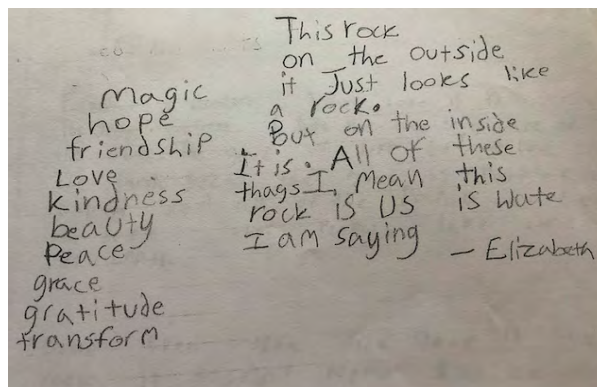 Magic
hope
friendship
Love
kindness
beauty
Peace
grace
gratitude
transform
This rock
on the outside
it Just looks like
a rock.
But on the inside
It is. All of these
thags I, Mean this
rock is us is wute
I am saying
— Elizabeth